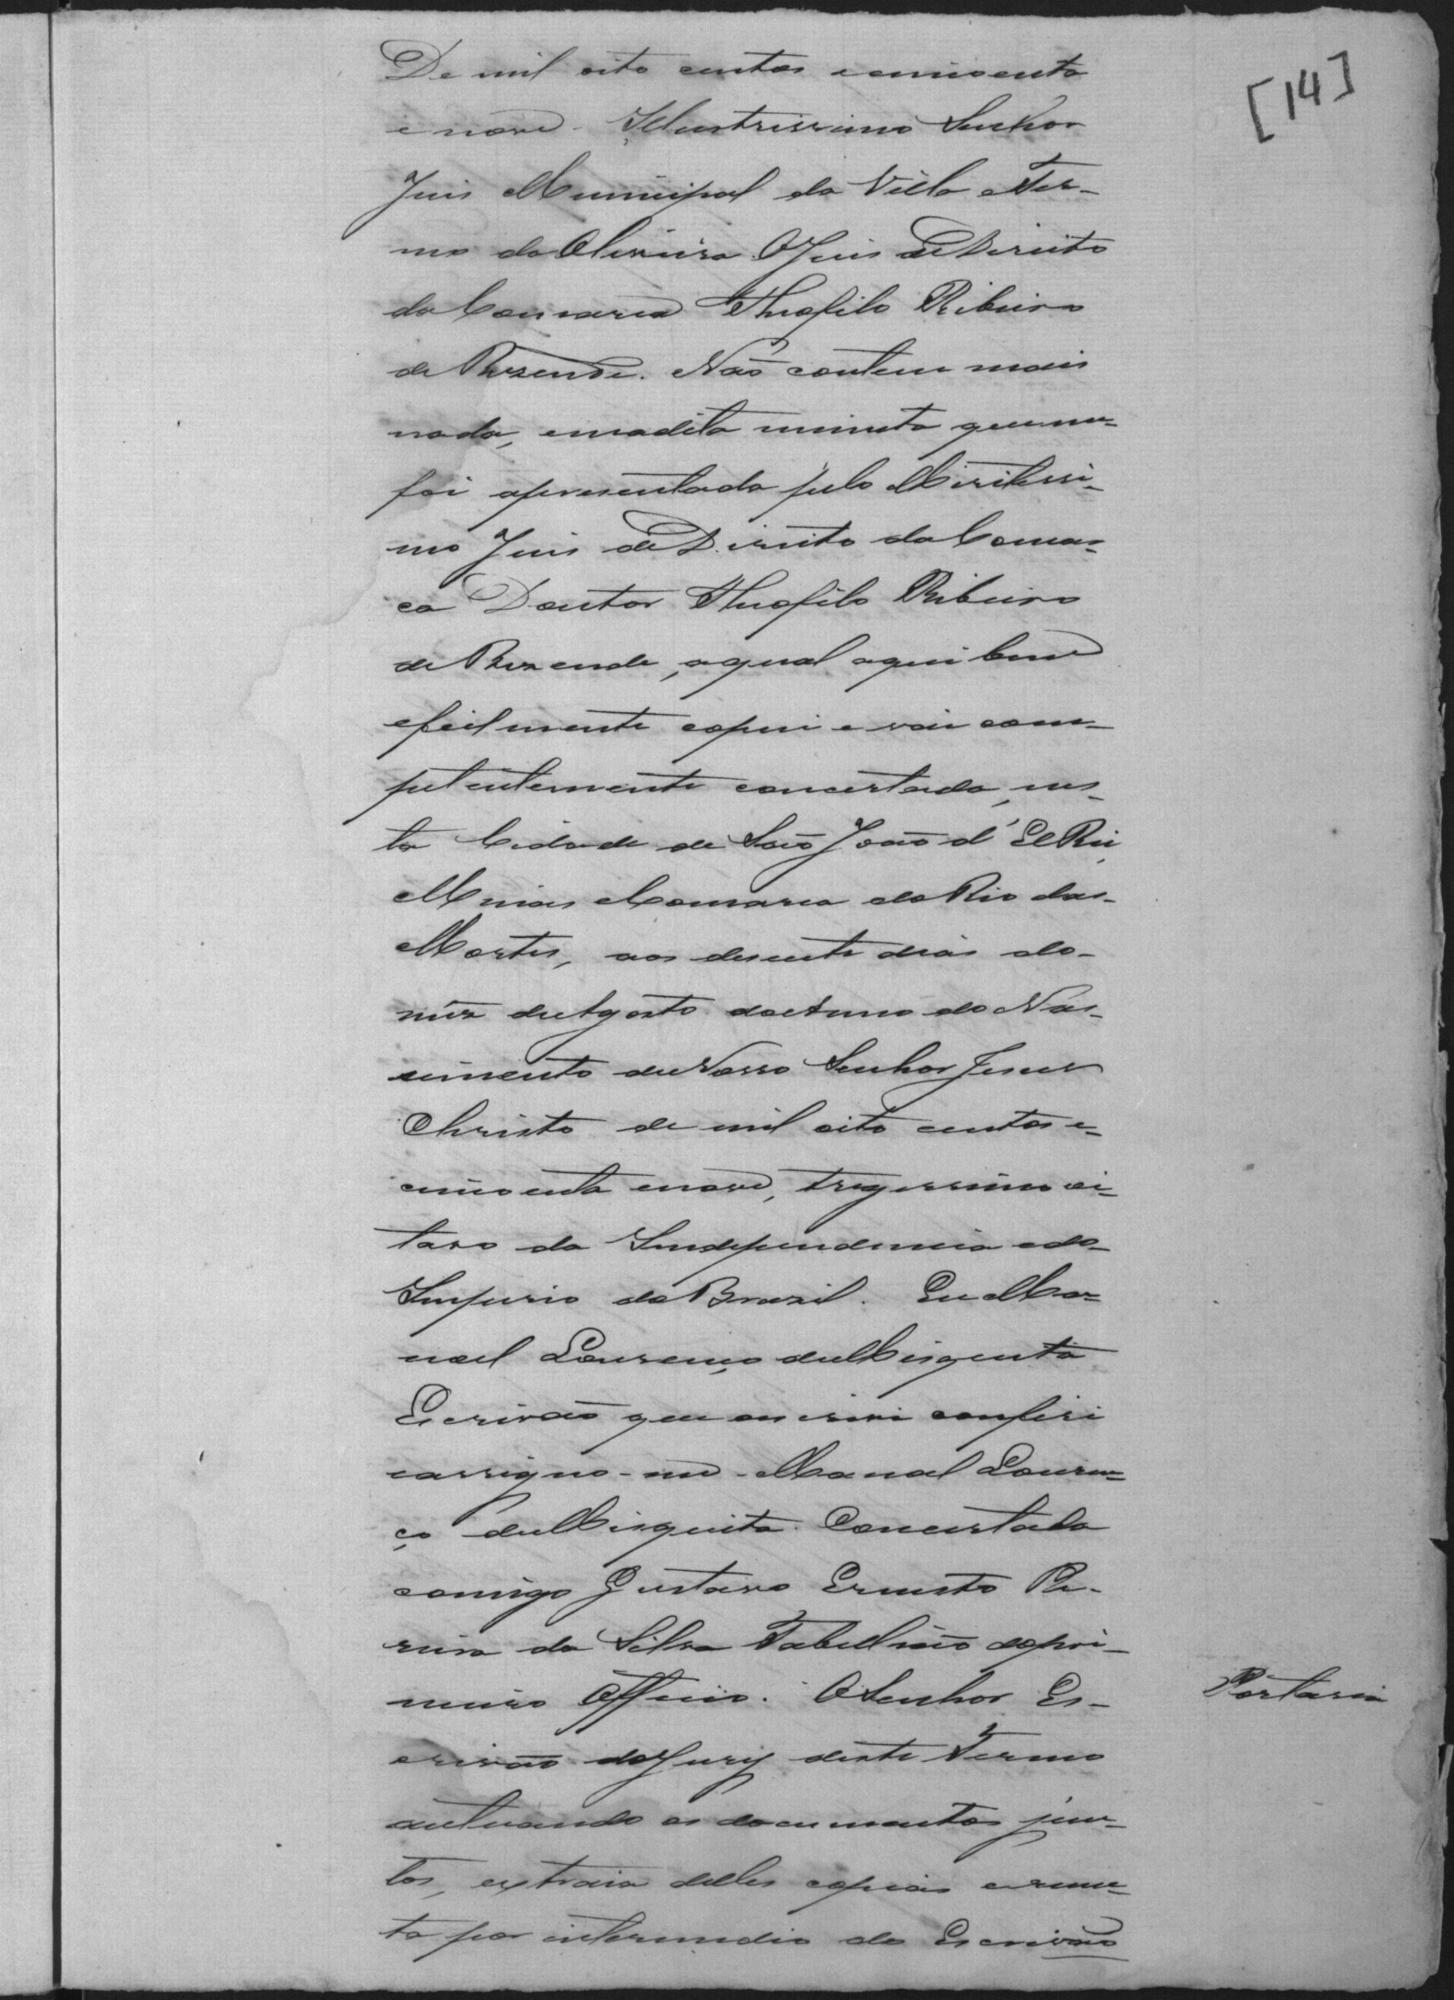 [14]
De mil oito centos e cincoenta
e nove. Illustrissimo Senhor
Juis Municipal da Villa e Ter-
mo da Oliveira. O Juis de Direito
da Comarca Theofilo Ribeiro
de Rezende. Não contem mais
nada, em a dita minuta que me-
foi apresentada pelo Miritissi-
mo Juis de Direito da Comar-
ca Doutor Theofilo Ribeiro
de Rezende, a qual aqui bem
e fielmente copiei e vai com-
petentemente concertada, nes-
ta Cidade de São João d'El Rei,
Minas e Comarca do Rio das-
Mortes, aos desente dias do-
mez de Agosto do Anno do Nas-
cimento de Nosso Senhor Jesus
Christo de mil oito centos e-
cincoenta e nove, trigessimo oi-
tavo da Independencia e do-
Imperio do Brazil. Eu Ma-
noel Lourenço de Misquita
Escrivão que escrevi conferi
e assigno-me - Manoel Louren-
ço de Misquita. Concertada
comigo Gustavo Ernesto Pe-
reira da Silva Tabellião do pri-
meiro Officio. O Senhor Es-
crivão do Jury deste Termo
autuando os documentos jun-
tos, extraia delles copias e reme-
ta por intermedio do Escrivão
Portaria